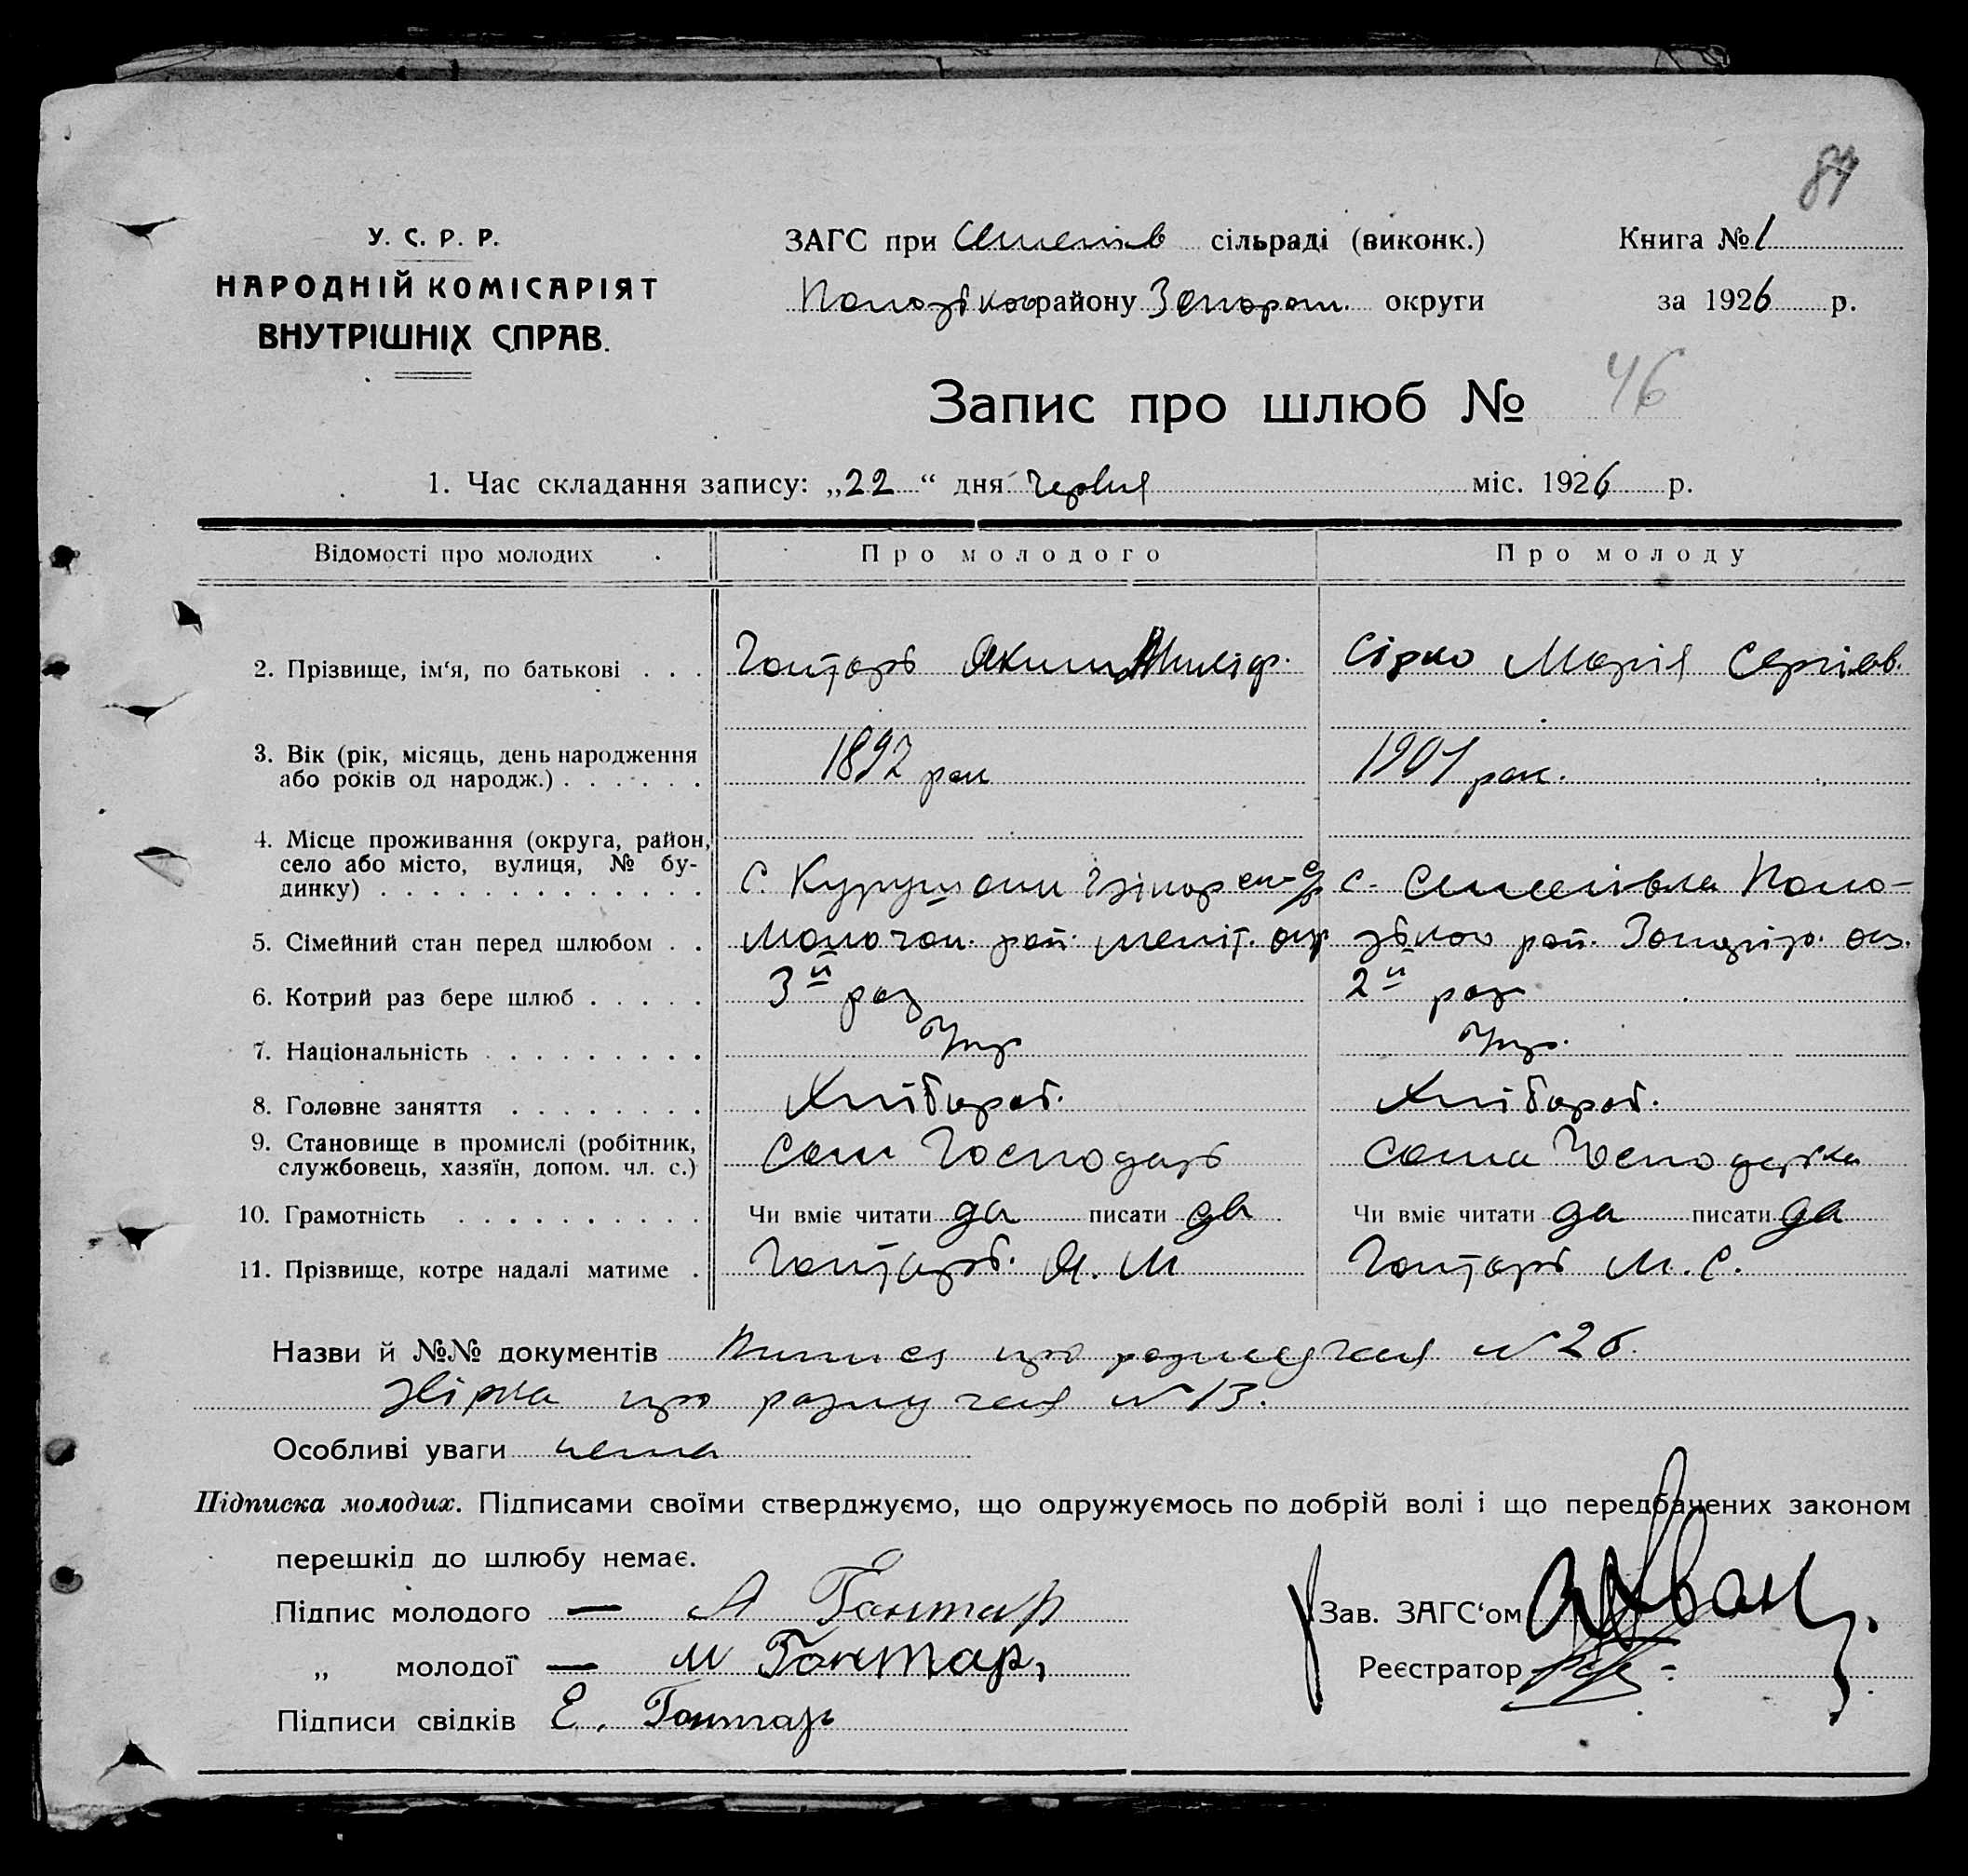 84
У. С. Р. Р.
НАРОДНІЙ КОМІСАРІЯТ
ВНУТРІШНІХ СПРАВ.
ЗАГС при Семенів сільраді (виконк.)
Пологівског району Запорож. округи
Книга № 1
за 1926 р.
Запис про шлюб № 46
1. Час складання запису: „22“ дня червня міс. 1926 р.
Відомості про молодих Про молодого Про молоду
2. Прізвище, ім'я, по батькові . . . Гонтарь Яким Сірко Марія Сергієв.
3. Вік (рік, місяць, день народження
або років од народж.) . . . . . . 1892 рок 1901 рок.
4. Місце проживання (округа, район,
село або місто, вулиця, № бу-
динку) . . . . . . . . . . . . . с. с. Семенівка Поло-
5. Сімейний стан перед шлюбом . . Молочан. рай. меліт. окр рай. ок.
6. Котрий раз бере шлюб . . . . . 3й раз 2й раз
7. Національність . . . . . . . . . Укр Укр.
8. Головне заняття . . . . . . . . Хлібороб. Хлібороб.
9. Становище в промислі (робітник,
службовець, хазяїн, допом. чл. с.) Сам Господарь Сама Господарька
10. Грамотність . . . . . . . . . . Чи вміє читати да писати да Чи вміє читати да писати да
11. Прізвище, котре надалі матиме . Гонтарь. Я. М Гонтарь М. С.
Назви й №№ документів Випись про N 26.
про N 13.
Особливі уваги нема
Підписка молодих. Підписами своїми стверджуємо, що одружуємось по добрій волі і що передбачених законом
перешкід до шлюбу немає.
Підпис молодого — А Гонтар
„ молодої — М Гонтар,
Підписи свідків Е. Гонтарь
Зав. ЗАГС'ом
Реєстратор